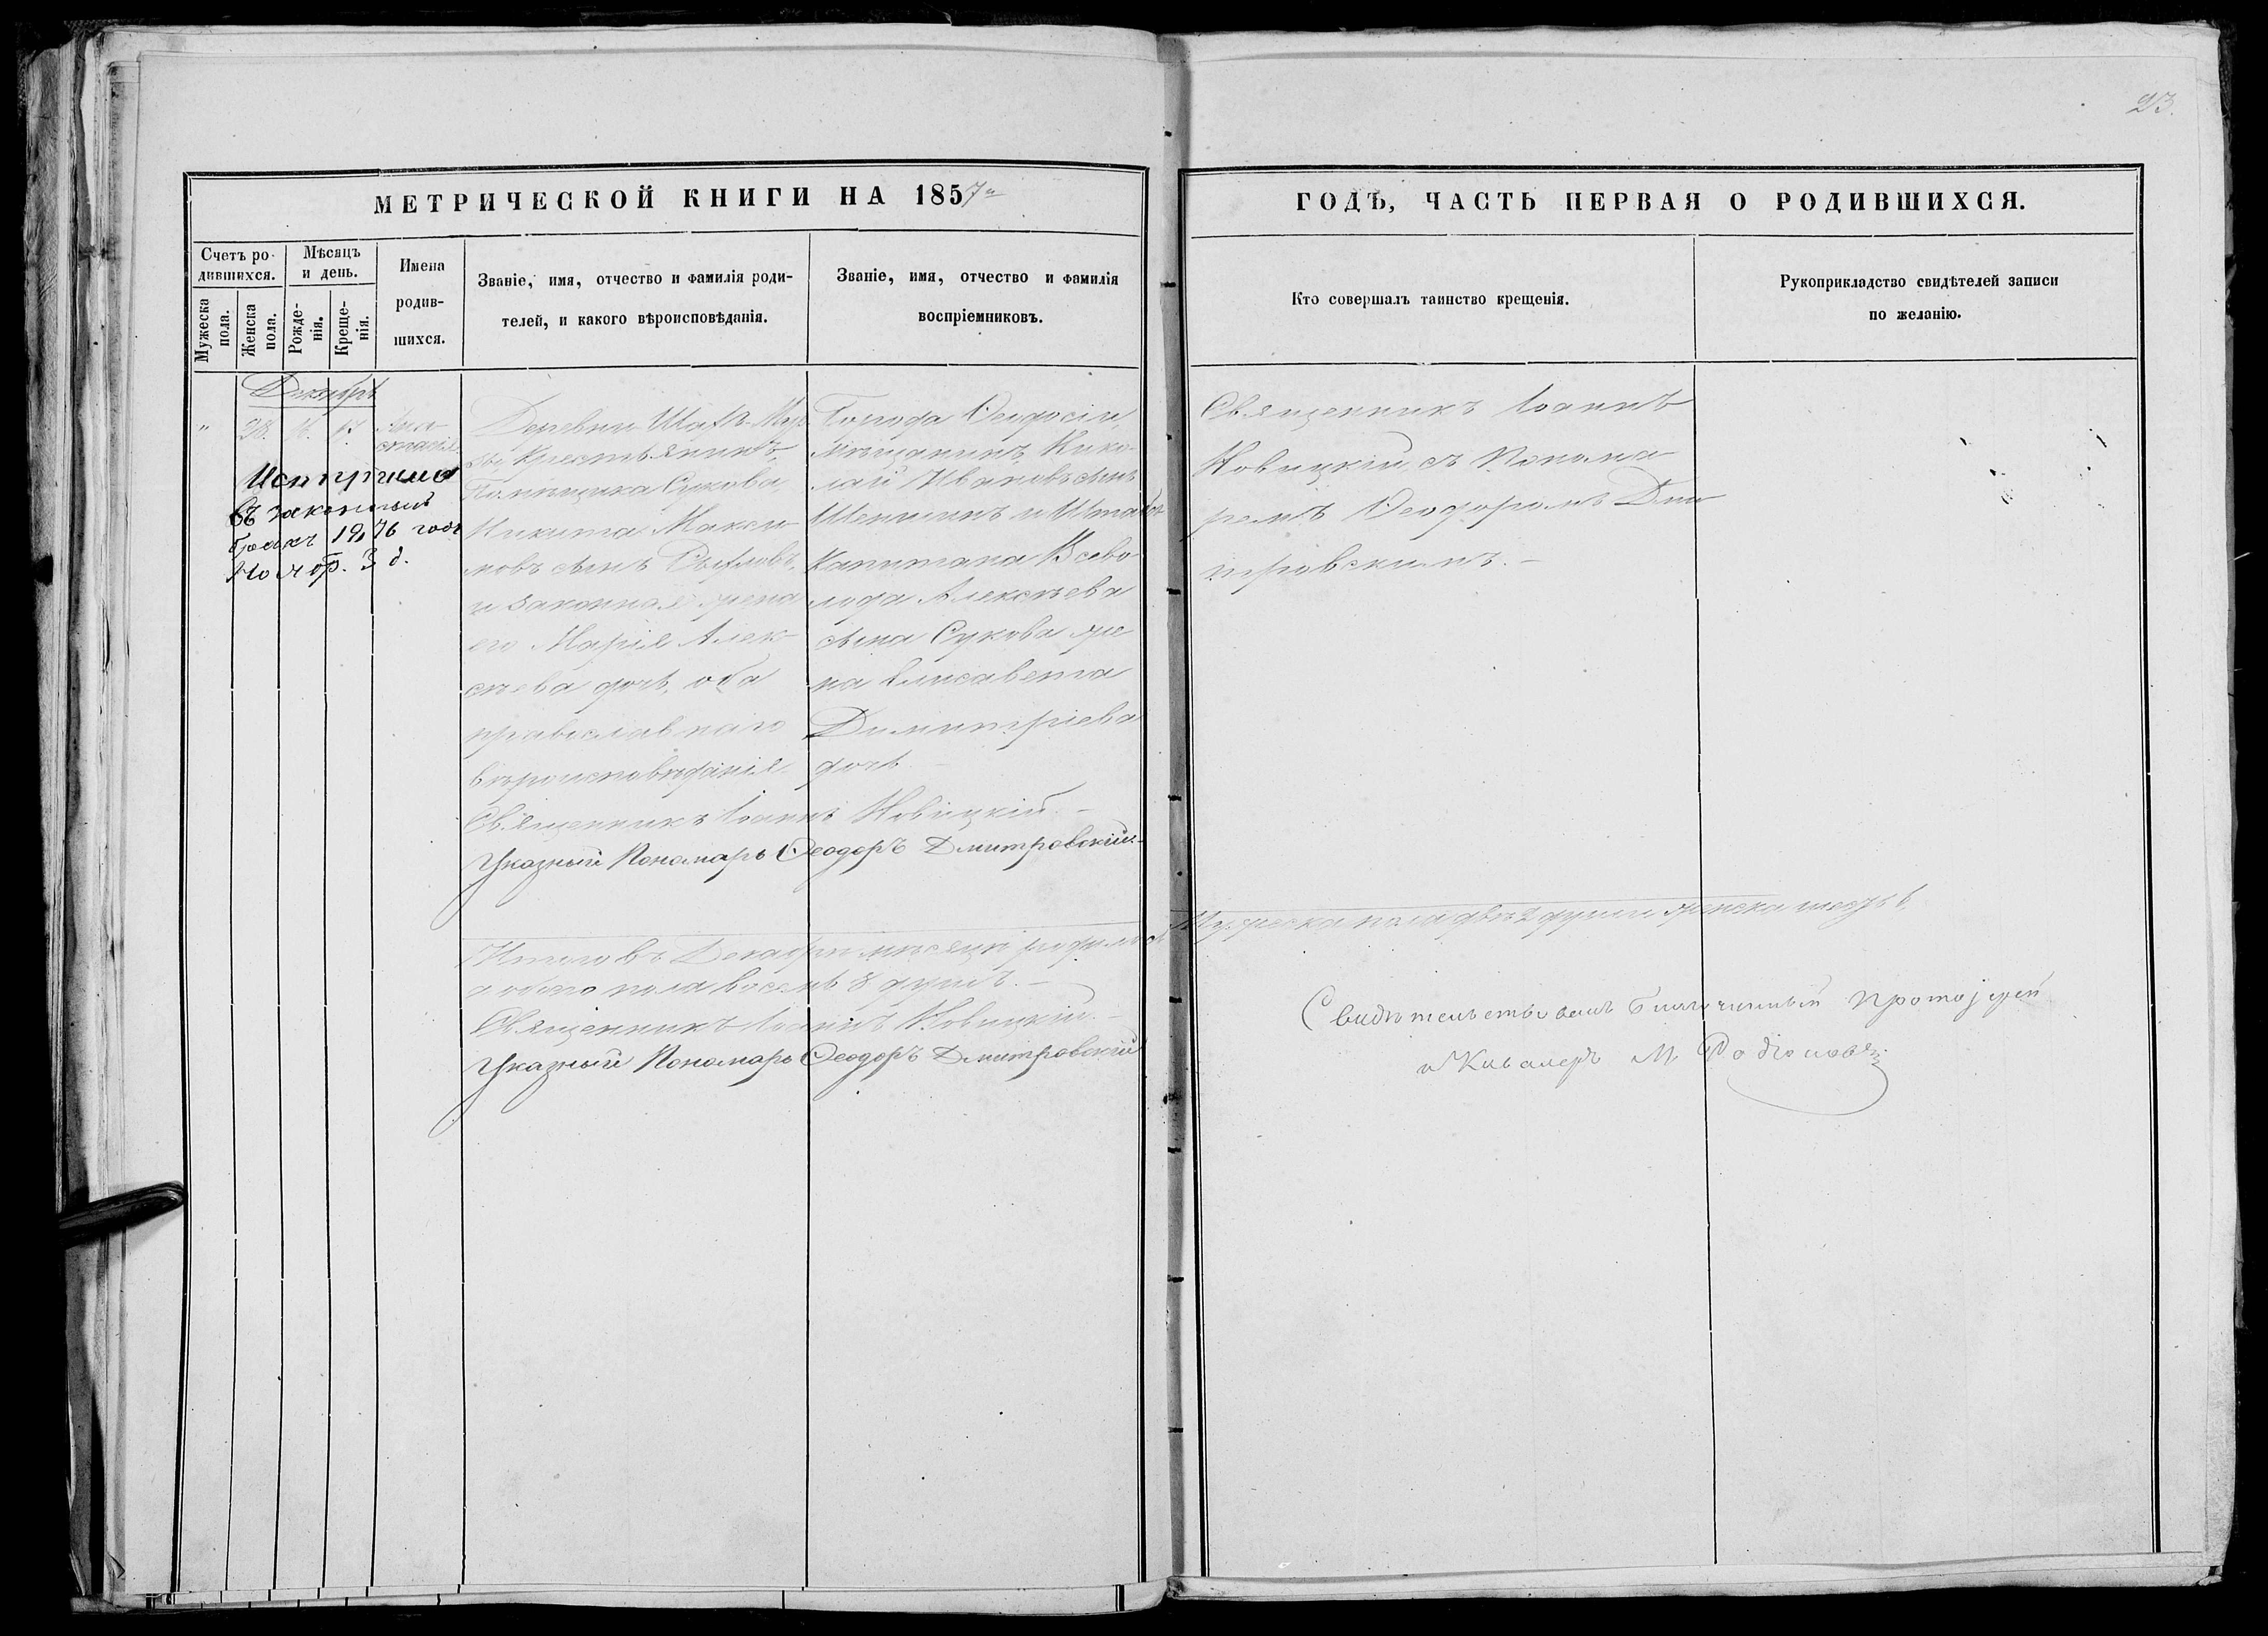 23.
МЕТРИЧЕСКОЙ КНИГИ НА 1857й
ГОДЪ, ЧАСТЬ ПЕРВАЯ О РОДИВШИХСЯ.
Счетъ ро-
дившихся.
Мужеска
пола.
Женска
пола.
Мѣсяцъ
и день.
Рожде-
нія.
Креще-
нія.
Имена
родив-
шихся.
Званіе, имя, отчество и фамилія роди-
телей, и какого вѣроисповѣданія.
Званіе, имя, отчество и фамилія
воспріемниковъ.
Кто совершалъ таинство крещенія.
Рукоприкладство свидѣтелей записи
по желанію.
Декабрь
" 28. 16. 17.
Ана-
стасія
въ законный
бракъ 1976 года
Ноябр. 3 д.
Деревни
Крестьянинъ
Помѣщика Сукова,
Никита Макси-
мовъ сынъ
и законная жена
его Марія Алек-
сѣева дочь, оба
православнаго
вѣроисповѣданія
Города Ѳеодосіи,
мѣщанинъ Нико-
лай Ивановъ сынъ
и Штабсъ
Капитана Всево-
лода Алексѣева
сына Сукова же-
на Елисавета
Димитріева
дочь.
Священникъ Іоаннъ Новицкій. -
Указный Пономарь Ѳеодоръ Дмитровскій.
Священникъ Іоаннъ
Новицкій, съ Понома-
ремъ Ѳеодоромъ Дми-
тровскимъ. -
Итого въ Декабрѣ мѣсяцѣ родилось
Мужеска пола двѣ 2 души женска шесть 6
а обоего пола восемь 8 душъ. -
Священникъ Іоаннъ Новицкій. -
Указный Пономарь Ѳеодоръ Дмитровскій
Свидѣтельствовалъ Благочинный Протоіерей
и Кавалеръ М. Родіоновъ